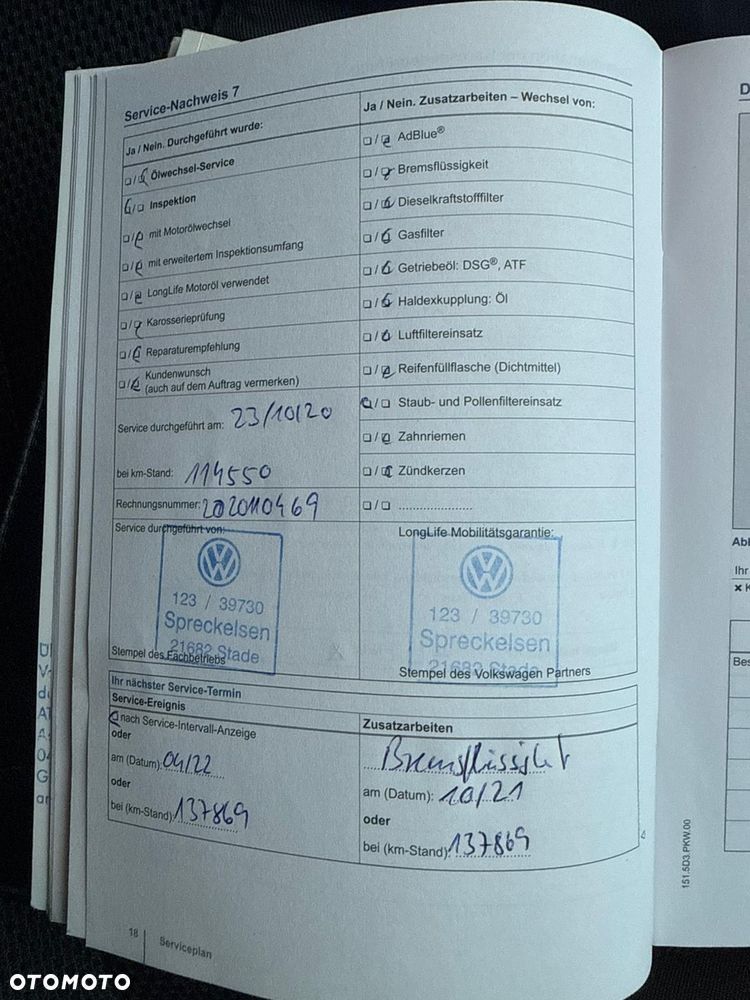 Service-Nachweis 7
Ja / Nein. Durchgeführt wurde:
☐/☐ Ölwechsel-Service
☐/☐ Inspektion
☐/☐ mit Motorölwechsel
☐/☐ mit erweitertem Inspektionsumfang
☐/☐ LongLife Motoröl verwendet
☐/☐ Karosserieprüfung
☐/☐ Reparaturempfehlung
☐/☐ Kundenwunsch
(auch auf dem Auftrag vermerken)
Service durchgeführt am: 23/10/20
bei km-Stand: 114550
Rechnungsnummer: 2020110469
Service durchgeführt von:
VW
123 / 39730
Spreckelsen
21682 Stade
Stempel des Fachbetriebs
Ja / Nein. Zusatzarbeiten – Wechsel von:
☐/☐ AdBlue®
☐/☐ Bremsflüssigkeit
☐/☐ Dieselkraftstofffilter
☐/☐ Gasfilter
☐/☐ Getriebeöl: DSG®, ATF
☐/☐ Haldexkupplung: Öl
☐/☐ Luftfiltereinsatz
☐/☐ Reifenfüllflasche (Dichtmittel)
☐/☐ Staub- und Pollenfiltereinsatz
☐/☐ Zahnriemen
☐/☐ Zündkerzen
☐/☐ ......................
LongLife Mobilitätsgarantie:
VW
123 / 39730
Spreckelsen
21682 Stade
Stempel des Volkswagen Partners
Ihr nächster Service-Termin
Service-Ereignis
☐ nach Service-Intervall-Anzeige
oder
am (Datum): 04/22
oder
bei (km-Stand): 137869
Zusatzarbeiten
Bremsflüssigkt
am (Datum): 10/21
oder
bei (km-Stand): 137869
18
Serviceplan
151.5D3.PKW.00
D
Abl
Ihr
Bes
OTOMOTO